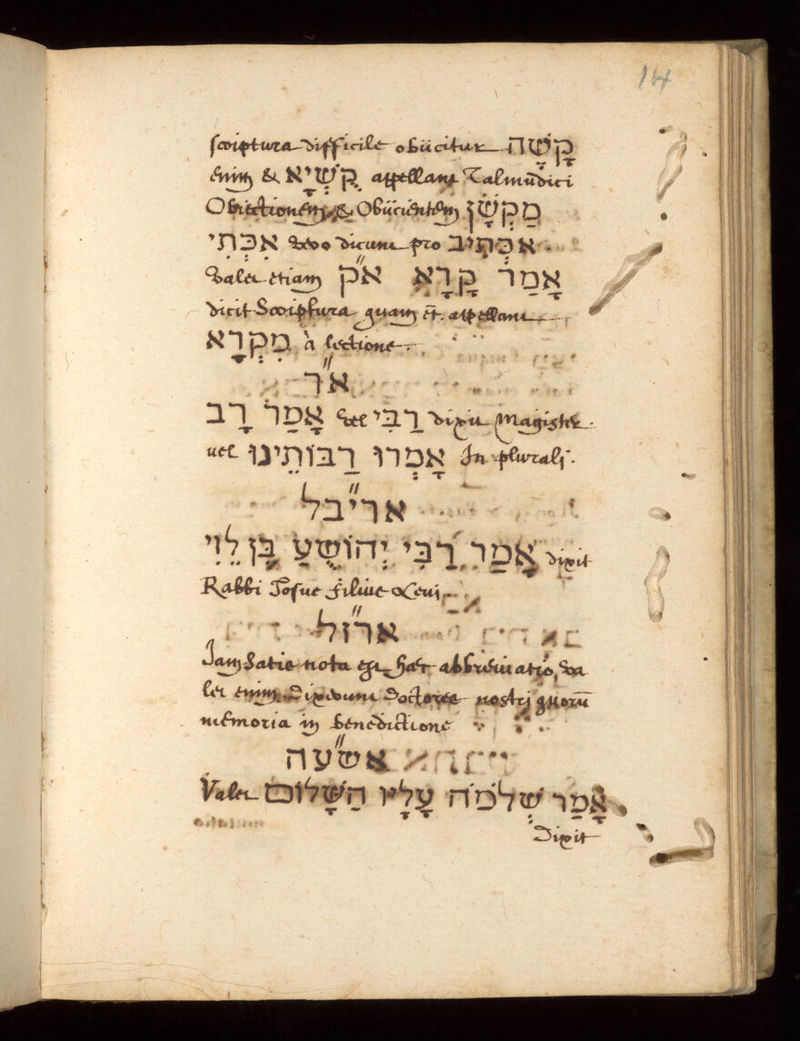 14
scriptura difficile obiicitur קָשָׁה
enim & קֻשְׁיָא appellant Talmudici
Obiectionem, & Obiicientem מַקְשָׁן
אַכְּתִיב vero dicunt pro אכְּתִי
valet etiam א״ק אָמַר קְרָא
dicit Scriptura quam et. appellant
מִקְרָא à lectione.
א״ר
אָמַר רָב vel רַבִּי dixit Magister.
uel אָמְרוּ רַבּוֹתֵינוּ In plurali.
ארי״בל
אָמַר רַבִּי יְהוֹשֻׁעַ בֶּן לֵוִי dixit
Rabbi Iosue filius Leui
אר״זל
Iam satis nota est hæc abbreuiatio, va
let enim Dixerunt Doctores nostrj quorū
memoria in benedictione
אש״עה
Valet אָמַר שְׁלֹמֹה עָלָיו הַשָּׁלוֹם
Dixit